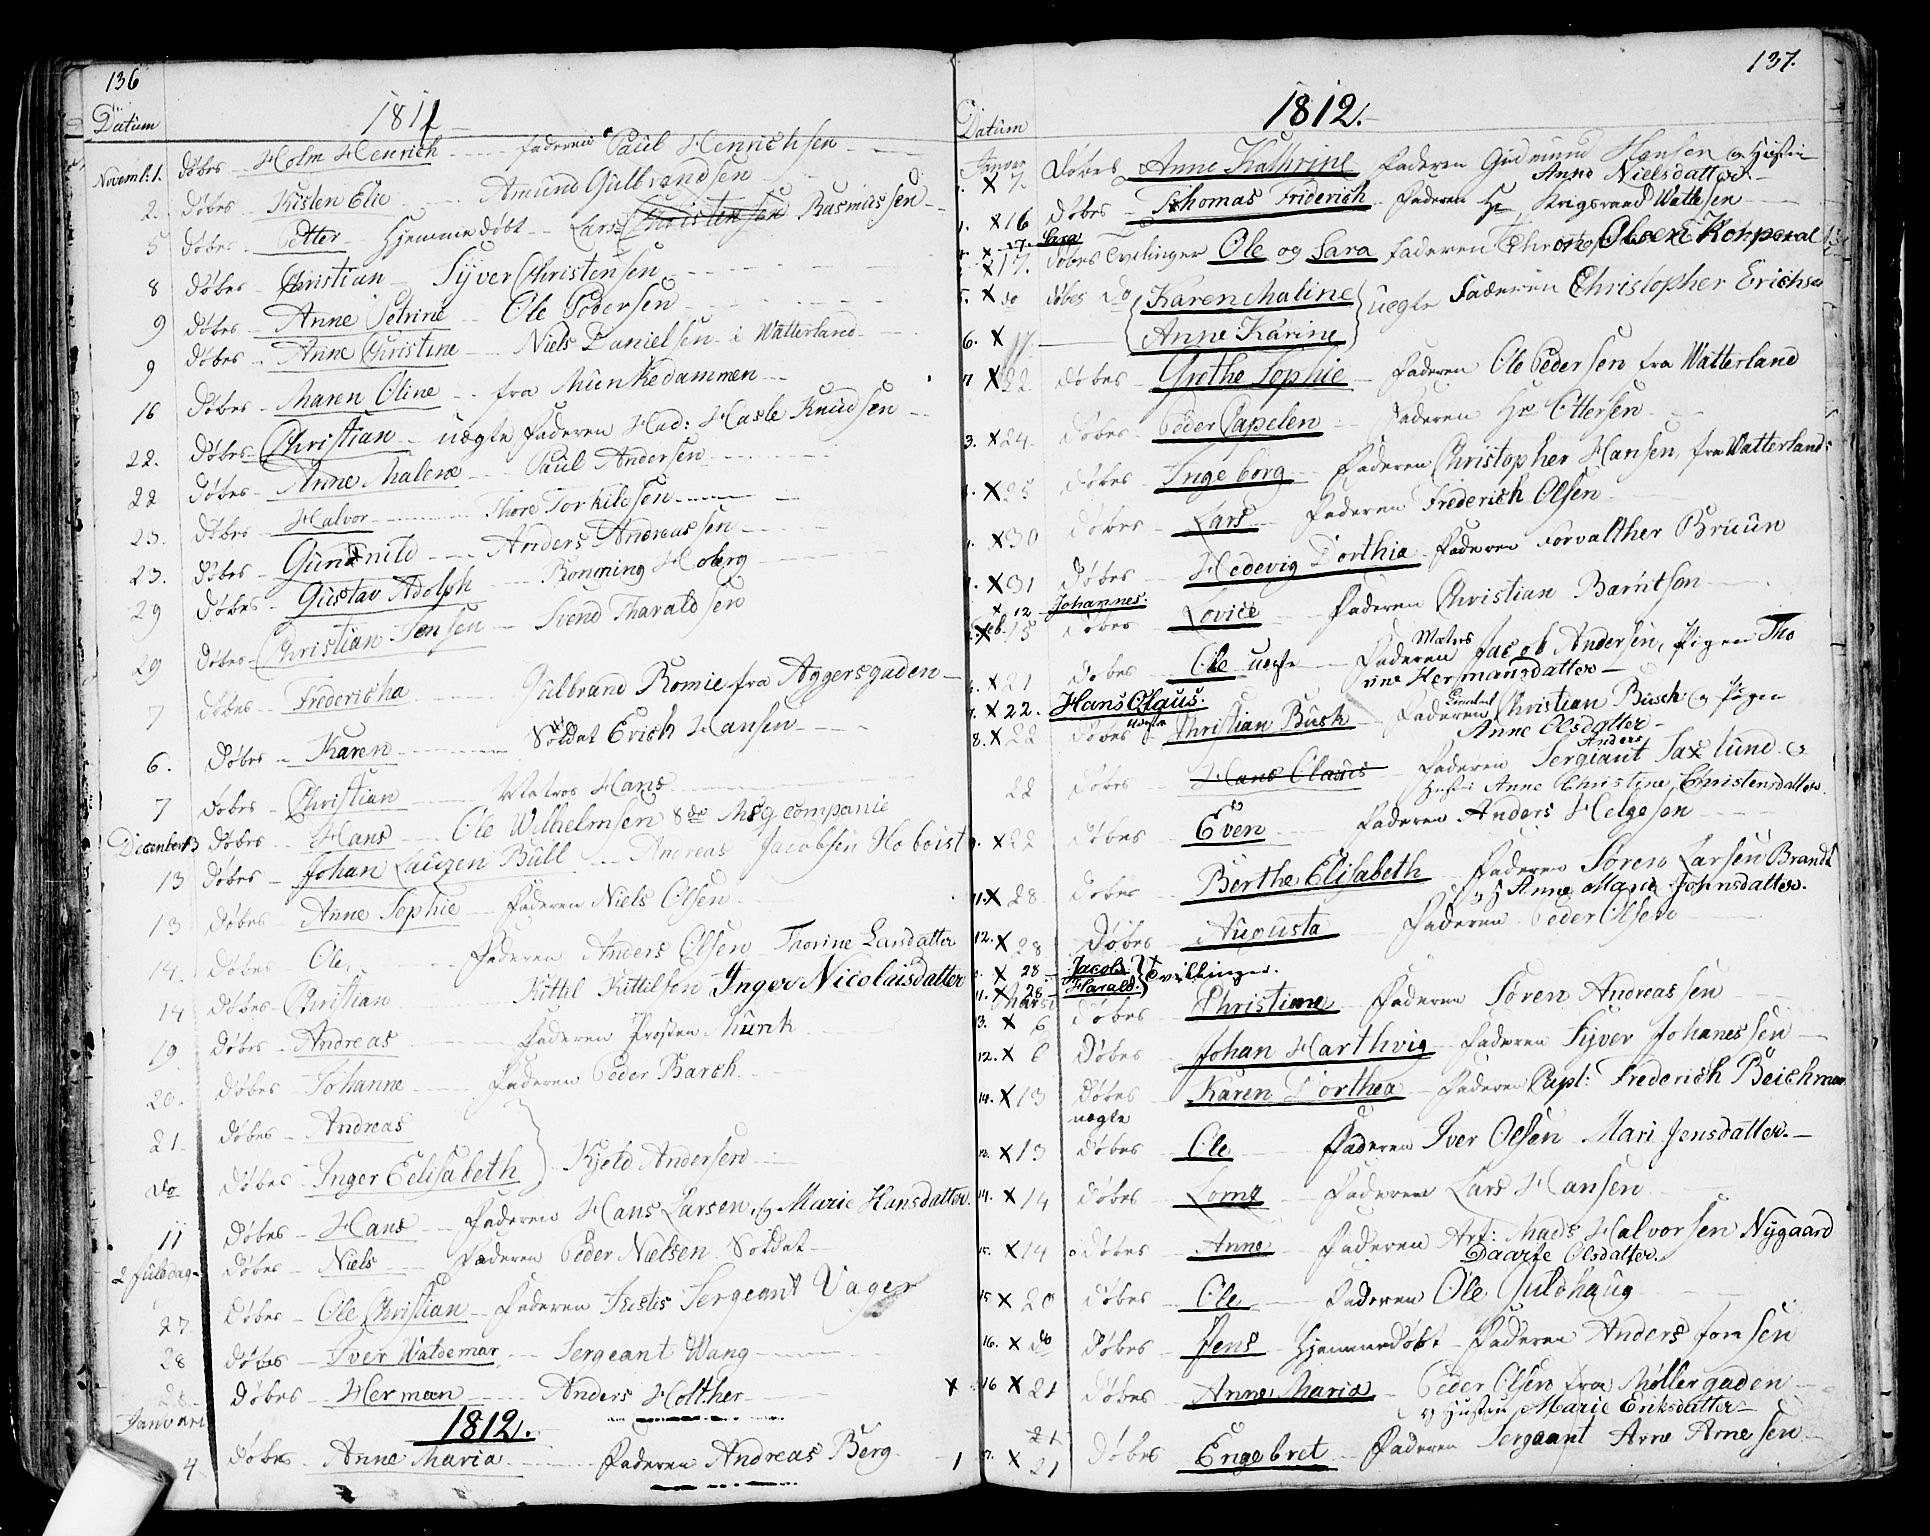 136
1811
Datum
Novembr: 1. Døbes Holm Henrich faderen Paul Henrichsen
2. Døbes Kisten Elie Amund Gulbrandsen
5 Døbes Petter Hjemme døbt Lars Christensen Rasmussen
8 Døbes Christian Syver Christensen
9 Døbes Anne Petrine Ole Pedersen
9 Døbes Anne Christine Niels Danielsen i Watterland
16 Døbes Maren Oline fra Munkedammen
22. Døbes Christian uegte faderen Mad: Hasle Knudsen
22 Døbes Anne Malene Paul Andersen
23. Døbes Halvor Thore Torkildsen
23. Døbes Gunnild Anders Andreassen
29 Døbes Gustav Adolph Rønning Hoberg
29 Døbes Christian Jensen Svend Tharaldsen
7 Døbes Fredericha Gulbrand Romie fra Aggersgaden
6. Døbes Karen Soldat Erich Hansen
7 Døbes Christian Matros Hans
December 13 Døbes Hans Ole Wilhelmsen 8de Musq companie
13 Døbes Johan Lautzen Bull Andreas Jacobsen Hoboist
13 Døbes Anne Sophie Faderen Niels Olsen
14. Døbes Ole, Faderen Anders Olsen Thorine Larsdatter
14 Døbes Christian Kittil Kittilsen Inger Nicolaisdatter
19 Døbes Andreas Faderen Prosten Munk
20. Døbes Johanne Faderen Peder Barch
21. Døbes Andreas
do Døbes Inger Eelisabeth Kjeld Andersen
11 Døbes Hans Faderen Hans Larsen, og Marie Hansdatter.
2 Juledag Døbes Niels Faderen Peder Nielsen Soldat
27 Døbes Ole Christian Faderen Justis Sergeant Vager
28 Døbes Iver Waldemar Sergeant Wang
28 Døbes Herman Anders Holther
Januari 1812.
4 Døbes Anne Maria Faderen Andreas Berg 1
137.
1812.
Datum
Januar
X 7. Døbes Anne Kathrine Faderen Gudmund Hansen og Hustru
Anne Nielsdatter
1. X 16 Døbes Thomas Friderich Faderen Hr Krigsraad Wattesen
X 17. Sara
X 17. Døbes Tvelinger Ole og Sara Faderen Olsen Korporal
5. X do Døbes do Karen Maline uegte Faderen Christopher Erichsen
6. X 17 Anne Karine
7 X 22 Døbes Grethe Sophie Faderen Ole Pedersen fra Watterland
3. X 24. Døbes Peder Capelen Faderen Hr Ottersen
X 25 Døbes Ingeborg Faderen Christopher Hansen, fra Watterland
X 30 Døbes Lars Faderen Frederich Olsen
X 31 Døbes Hedevig Dorthia Faderen Forvalther Bruun
X 12 Johannes.
Feb. X 15 Døbes Lovice Faderen Christian Barntsen
X 21 Døbes Ole uegte Faderen Matros Jacob Andersen, Pigen Tho
rine Hermansdatter
X 22. Hans Claus.
8. X 22 Døbes uegte Christian Busk Faderen Christian Busch og Pigen
Anne Olsdatter
22 Døbes Hans Claus Faderen Sergiant Anders Saxlund. og
Hustru Anne Christine Christensdatter.
9. X 22 Døbes Even Faderen Anders Helgesen
11. X 28 Døbes Berthe Elisabeth Faderen Søren Larsen Brandt
og Anne Marie Johnsdatter.
12. X 28 Døbes Augusta Faderen Peder Olsen
X 28 Jacob
11. X 28 Harald. Tvillinger.
Marsi
3. X 6 Døbes Christiane Faderen Søren Andreassen
12. X 6 Døbes Johan Harthvig Faderen Syver Johanessen
14. X 13 Døbes Karen Dorthea Faderen Capt: Frederich Beichman
uegte
13. X 13 Døbes Ole Faderen Iver Olsen Mari Jensdatter.
14. X 14 Døbes Lornz Faderen Lars Hansen
15. X 14 Døbes Anne Faderen Art: Mads Halvorsen Nygaard
Daarte Olsdatter.
15 X 20 Døbes Ole Faderen Ole Guldhaug
16. X do Døbes Jens Hjemmedøbt Faderen Anders fornsen
X 16 X 21 Døbes Anne Maria Peder Olsen fra Møllergaden
og Hustru Marie Eriksdatter
21
X 21 Døbes Engebret Faderen Sergeant Arne Arnesen